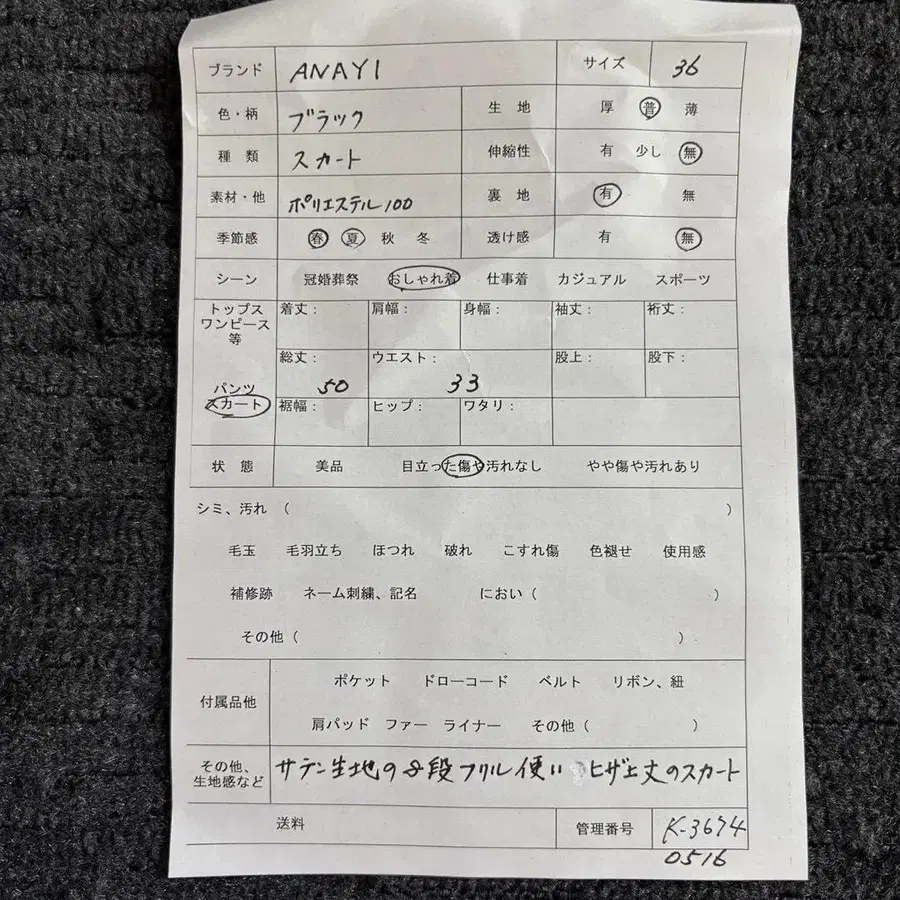 ブランド ANAYI サイズ 36
色・柄 ブラック 生 地 厚 普 薄
種 類 スカート 伸縮性 有 少し 無
素材・他 ポリエステル100 裏 地 有 無
季節感 春 夏 秋 冬 透け感 有 無
シーン 冠婚葬祭 おしゃれ着 仕事着 カジュアル スポーツ
トップス
ワンピース
等
着丈: 肩幅: 身幅: 袖丈: 裄丈:
総丈: 50 ウエスト: 33 股上: 股下:
パンツ
スカート
裾幅: ヒップ: ワタリ:
状 態 美品 目立った傷や汚れなし やや傷や汚れあり
シミ、汚れ ( )
毛玉 毛羽立ち ほつれ 破れ こすれ傷 色褪せ 使用感
補修跡 ネーム刺繍、記名 におい ( )
その他 ( )
付属品他 ポケット ドローコード ベルト リボン、紐
肩パッド ファー ライナー その他 ( )
その他、
生地感など
サテン生地の8段フリル使い ヒザ上丈のスカート
送料 管理番号 K-3674
0516